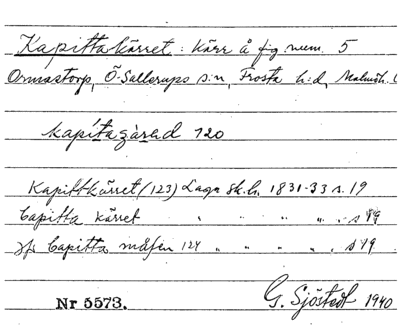 Kapittakärret: Kärr å fig num. 5
Ormastorp, Ö. Sallerups s:n, Frosta h:d, Malmöh. l
kapitazárad 120
Kapittkärret (123) Laga sk. h. 1831-33 s. 19
Capitta kärret " " " " s 19
jfr Capitta måsen 124 " " " " s 19.
Nr 5573. G. Sjöstedt 1940